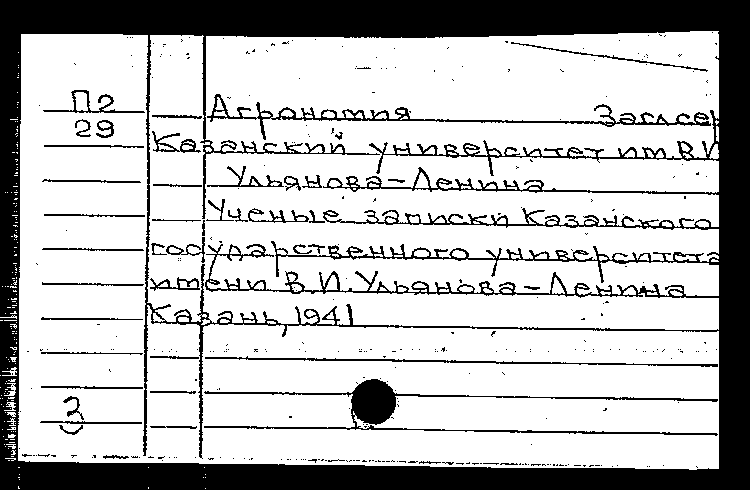 П2 Агрономия Загл.сер
29
Казанский университет им.В.И
Ульянова-Ленина.
Ученые записки Казанского
государственного университета
имени В.И.Ульянова-Ленина
Казань, 1941
З